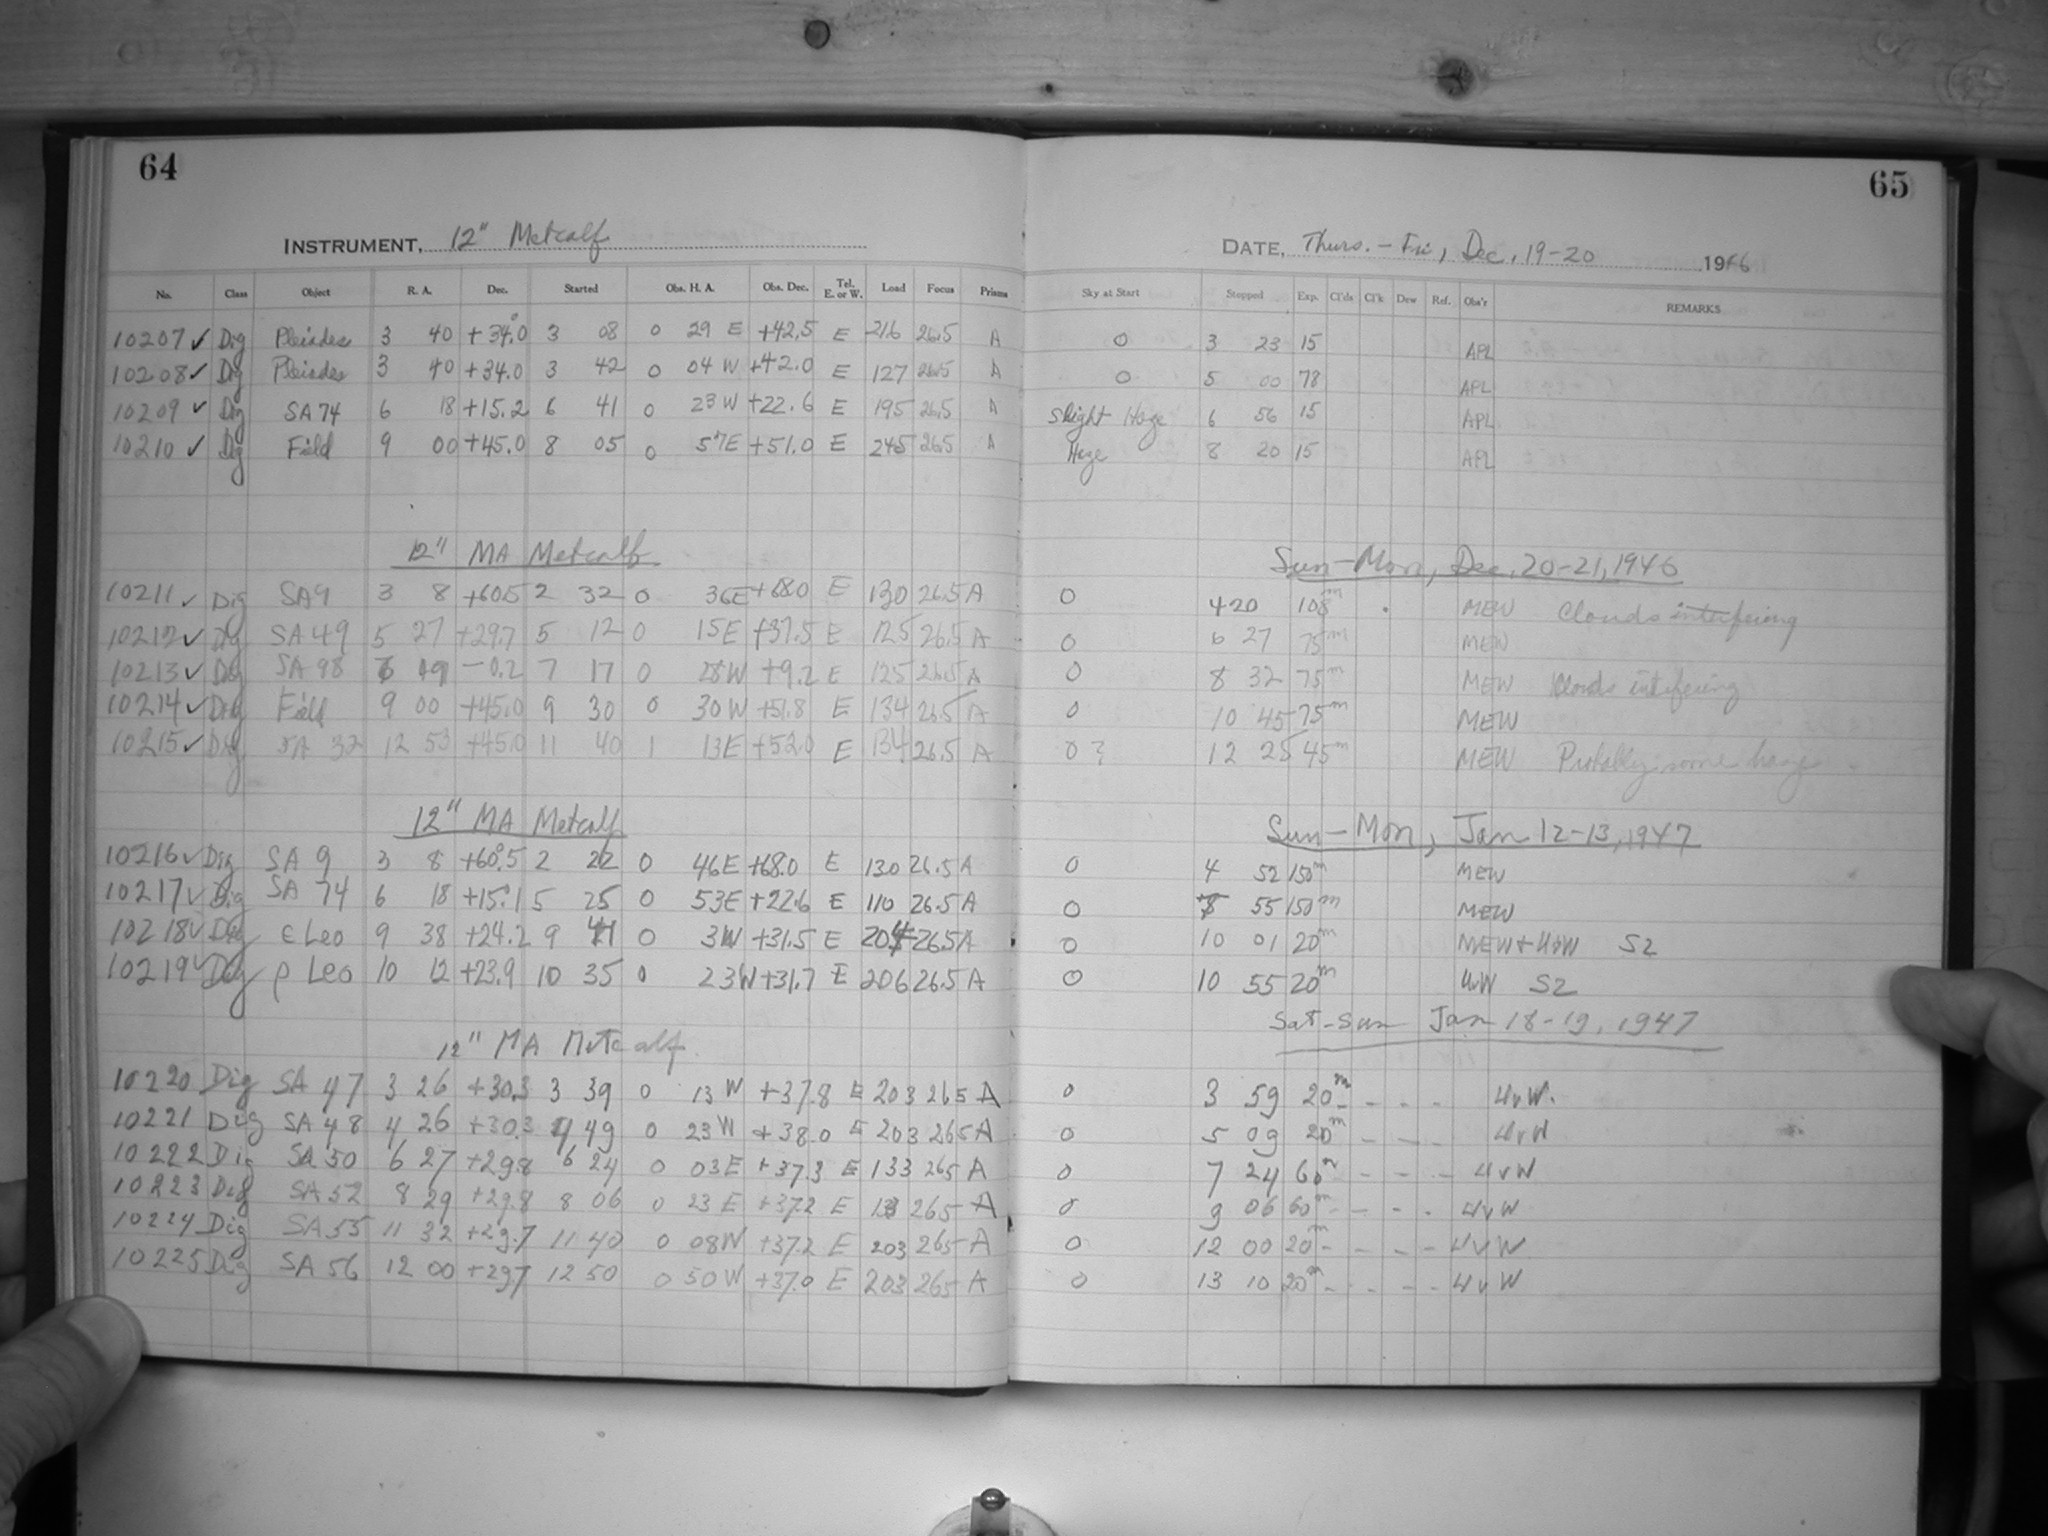 64
65
INSTRUMENT, 12" Metcalf DATE, Thurs. - Fri, Dec. 19-20 1946
No. Class Object R. A. Dec. Started Obs. H. A. Obs. Dec. Tel. E. or W. Load Focus Prisms Sky at Start Stopped Exp. Cl'ds Cl'k Dew Ref. Obs'r REMARKS
10207 ✓ Dig Pleiades 3 40 +34.0° 3 08 0 29 E +42.5 E 216 26.5 A 0 3 23 15 APL
10208 ✓ Dig Pleiades 3 40 +34.0 3 42 0 04 W +42.0 E 127 26.5 A 0 5 00 78 APL
10209 ✓ Dig SA 74 6 18 +15.2 6 41 0 23 W +22.6 E 195 26.5 A Slight Haze 6 56 15 APL
10210 ✓ Dig Field 9 00 +45.0 8 05 0 57 E +51.0 E 245 26.5 A Haze 8 20 15 APL
12" MA Metcalf Sun-Mon, Dec. 20-21, 1946
10211 ✓ Dig SA 9 3 8 +60.5 2 32 0 36 E +68.0 E 130 26.5 A 0 4 20 108m MEW Clouds interfering
10212 ✓ Dig SA 49 5 27 +29.7 5 12 0 15 E +37.5 E 125 26.5 A 0 6 27 75m MEW
10213 ✓ Dig SA 98 6 49 -0.2 7 17 0 28 W +9.2 E 125 26.5 A 0 8 32 75m MEW Clouds interfering
10214 ✓ Dig Field 9 00 +45.0 9 30 0 30 W +51.8 E 134 26.5 A 0 10 45 75m MEW
10215 ✓ Dig SA 32 12 53 +45.0 11 40 1 13 E +52.0 E 134 26.5 A 0? 12 25 45m MEW Probably some haze
12" MA Metcalf Sun-Mon, Jan 12-13, 1947
10216 ✓ Dig SA 9 3 8 +60.5 2 22 0 46 E +68.0 E 130 26.5 A 0 4 52 150m MEW
10217 ✓ Dig SA 74 6 18 +15.1 5 25 0 53 E +22.6 E 110 26.5 A 0 55 150m MEW
10218 ✓ Dig ε Leo 9 38 +24.2 9 41 0 3 W +31.5 E 204 26.5 A 0 10 01 20m MEW + UvW S2
10219 ✓ Dig ρ Leo 10 12 +23.9 10 35 0 23 W +31.7 E 206 26.5 A 0 10 55 20m UvW S2
12" MA Metcalf Sat-Sun Jan 18-19, 1947
10220 Dig SA 47 3 26 +30.3 3 39 0 13 W +37.8 E 203 265 A 0 3 59 20m - - - - UvW.
10221 Dig SA 48 4 26 +30.3 4 49 0 23 W +38.0 E 203 265 A 0 5 09 20m - - - UvW
10222 Dig SA 50 6 27 +29.8 6 24 0 03 E +37.3 E 133 265 A 0 7 24 60m - - - - UvW
10223 Dig SA 52 8 29 +29.8 8 06 0 23 E +37.2 E 133 265 A 0 9 06 60m - - - - UvW
10224 Dig SA 55 11 32 +29.7 11 40 0 08 W +37.2 E 203 265 A 0 12 00 20m - - - - UvW
10225 Dig SA 56 12 00 +29.7 12 50 0 50 W +37.0 E 203 265 A 0 13 10 20m - - - - UvW